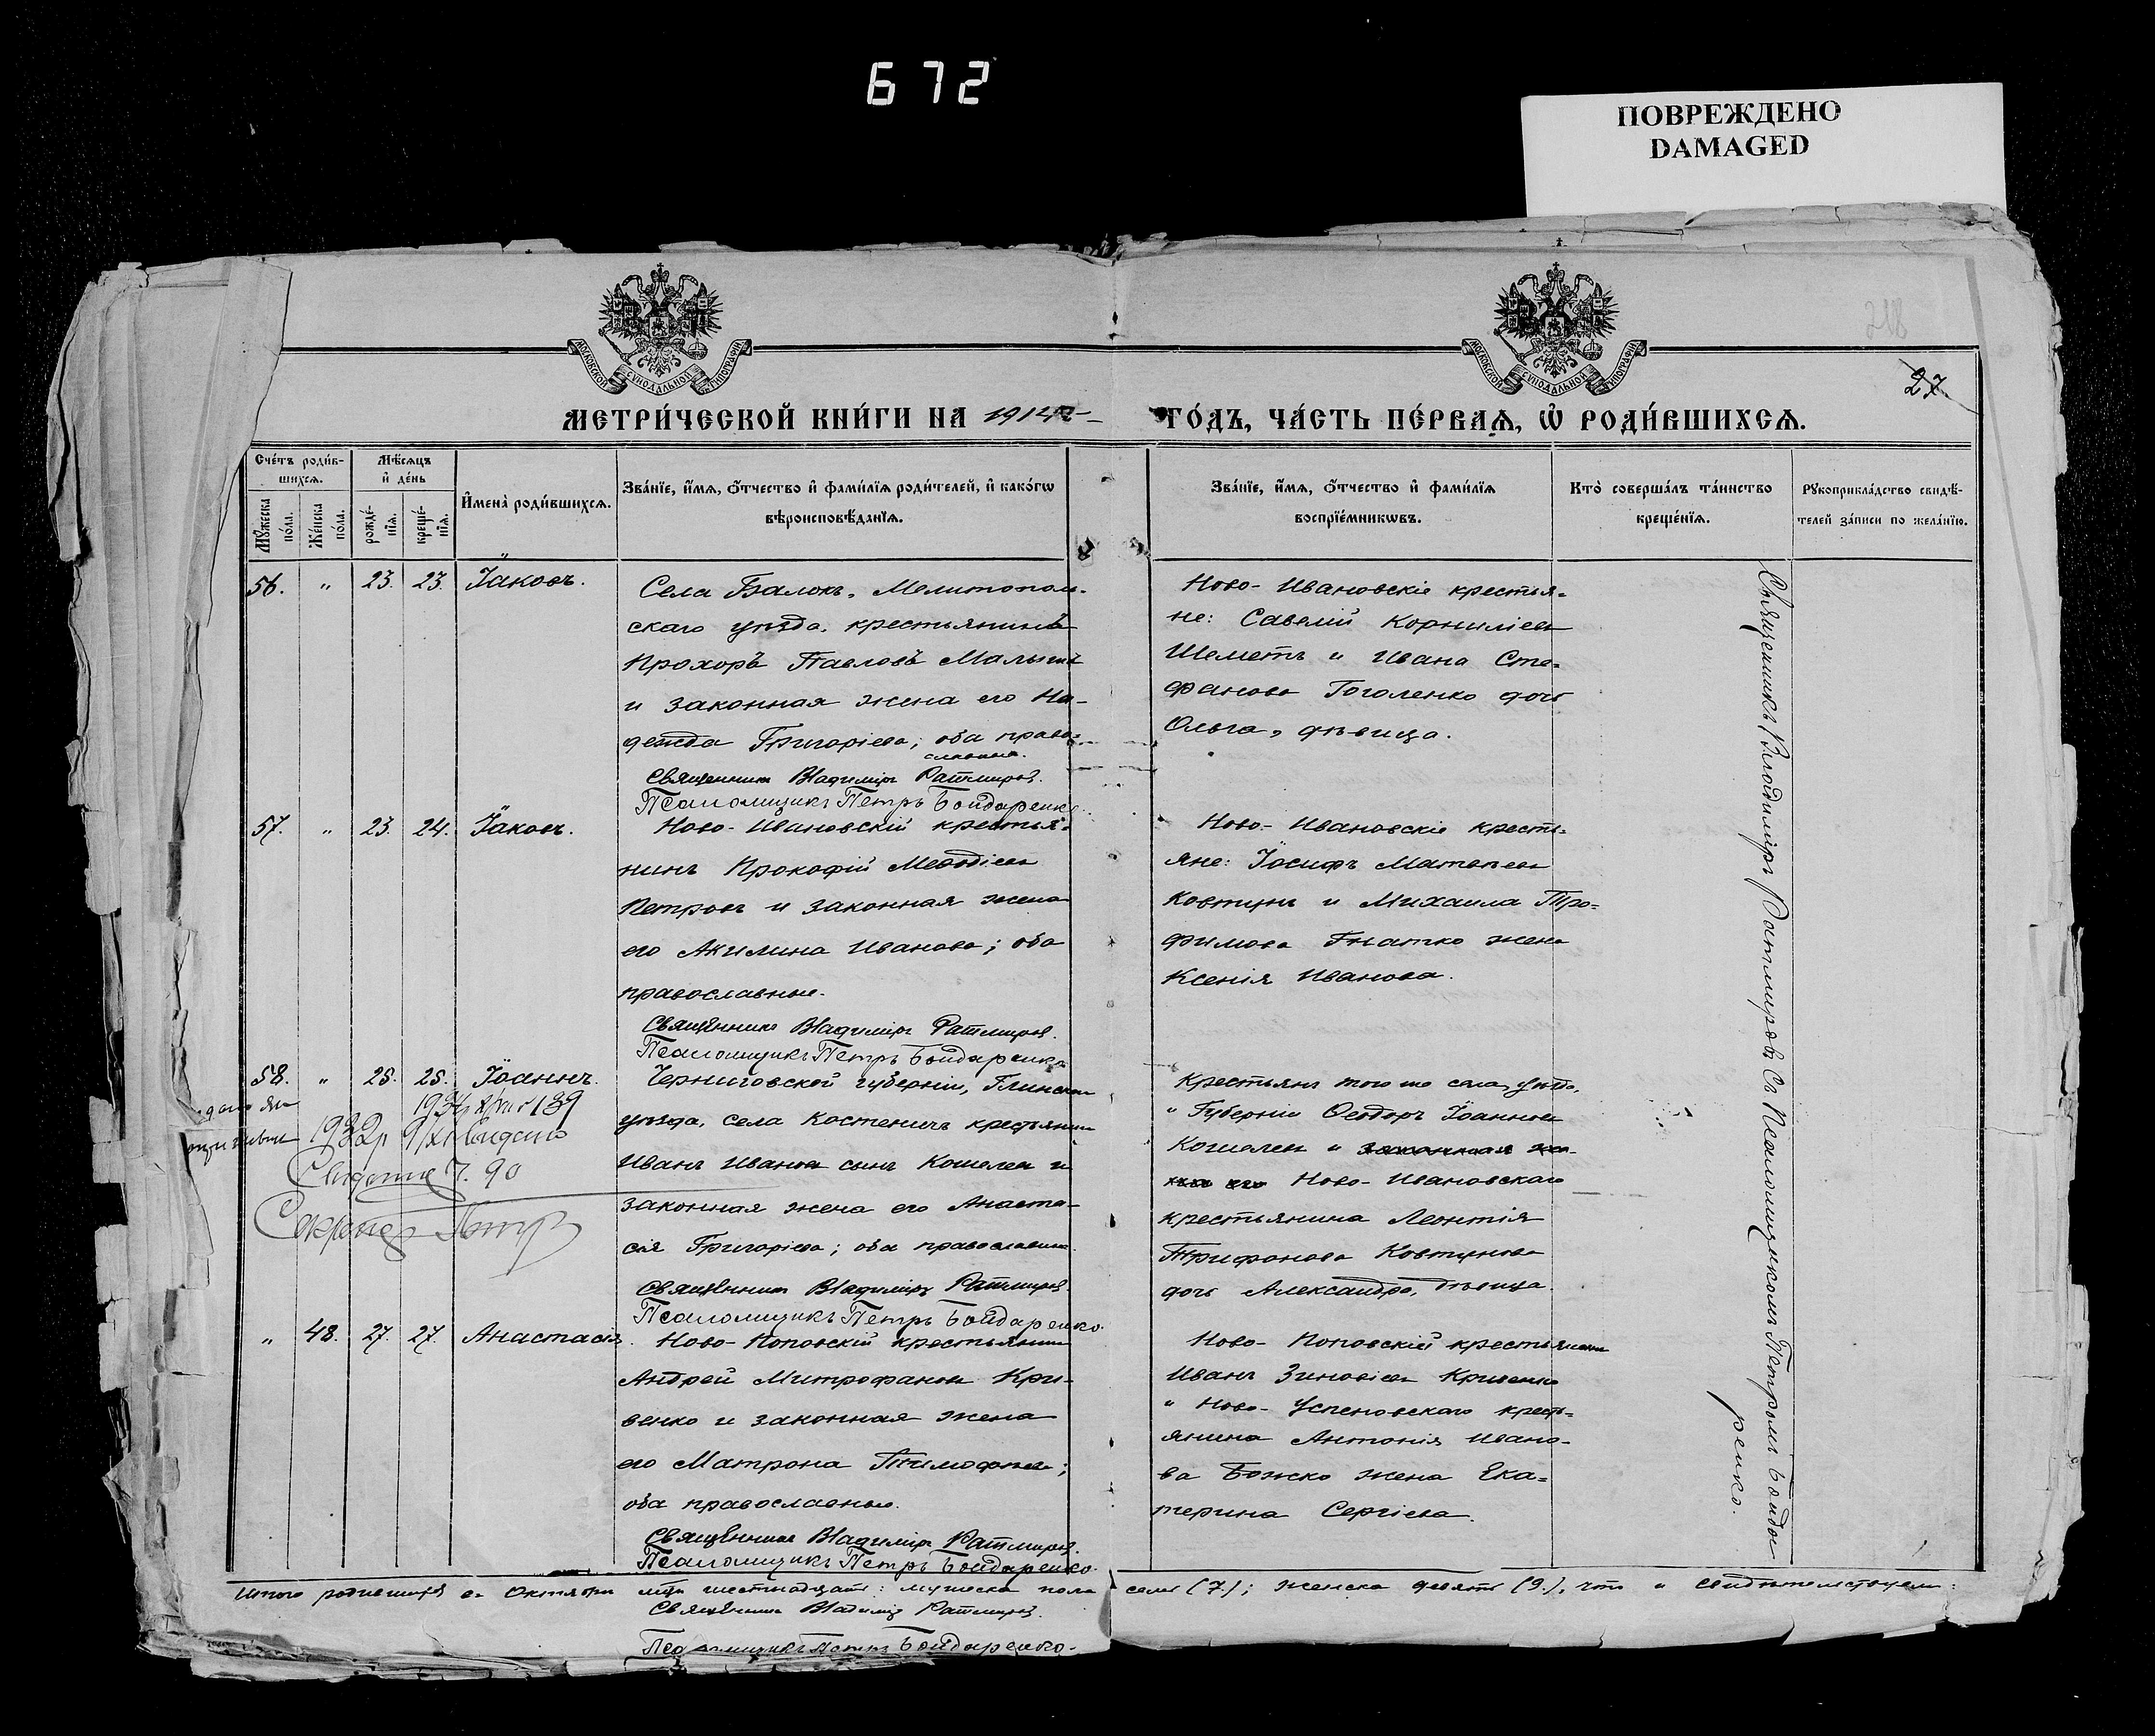 672
ПОВРЕЖДЕНО
DAMAGED
МОСКОВСКОЙ СУНОДАЛЬНОЙ ТИПОГРАФІИ
МОСКОВСКОЙ СУНОДАЛЬНОЙ ТИПОГРАФІИ
218
27
МЕТРИ́ЧЕСКОЙ КНИ́ГИ НА 1914
ГО́ДЪ, ЧА́СТЬ ПЕ́РВАѦ, Ѡ҆ РОДИ́ВШИХСѦ.
Сче́тъ роди́в-
шихсѧ.
Мѣ́сѧцъ
и҆ де́нь
Мꙋ́жеска
по́ла.
Же́нска
по́ла.
рожде́-
нїѧ.
креще́-
нїѧ.
И҆мена̀ роди́вшихсѧ.
Зва́нїе, и҆́мѧ, ѻ҆́тчество и҆ фами́лїѧ роди́телей, и҆ како́гѡ
вѣроисповѣ́данїѧ.
Зва́нїе, и҆́мѧ, ѻ҆́тчество и҆ фами́лїѧ
воспрїе́мникѡвъ.
Кто̀ соверша́лъ та́инство
креще́нїѧ.
Рꙋкоприкла́дство свидѣ́-
телей за́писи по жела́нїю.
56. " 23. 23. Іаковъ.
Села Балокъ, Мелитополь-
скаго уѣзда, крестьянинъ
Прохоръ Павловъ Малый
и законная жена его На-
дежда Григоріева; оба право-
славные.
Священникъ Владиміръ Ратмировъ.
Псаломщикъ Петръ Бондаренко.
Ново-Ивановскіе крестья-
не: Савелій Корниліевъ
Шеметъ и Ивана Сте-
фанова Гоголенко дочь
Ольга, дѣвица.
57. " 23. 24. Іаковъ.
Ново-Ивановскій крестья-
нинъ Прокофій Меѳодіевъ
Петровъ и законная жена
его Акилина Иванова; оба
православные.
Священникъ Владиміръ Ратмировъ.
Псаломщикъ Петръ Бондаренко
Ново-Ивановскіе кресть-
яне: Іосифъ Матвѣевъ
Ковтунъ и Михаила Тро-
фимова Гнатко жена
Ксенія Иванова.
58. " 25. 25. Іоаннъ.
Черниговской губерніи, Глинскаго
уѣзда, села Костеничъ крестьянинъ
Иванъ Ивановъ сынъ Кошелев и
законная жена его Анаста-
сія Григоріева; оба православные.
Священникъ Владиміръ Ратмировъ.
Псаломщикъ Петръ Бондаренко.
139
1932р
90
Крестьянъ того же села, уѣзда,
и Губерніи Ѳеодоръ Іоанновъ
Кошелевъ и законная же-
на его Ново-Ивановскаго
крестьянина Леонтія
Трифонова Ковтунова
дочь Александра, дѣвица.
" 48. 27. 27. Анастасія.
Ново-Поповскій крестьянинъ
Андрей Митрофановъ Кри-
венко и законная жена
его Матрона Тимофѣева;
оба православные.
Священникъ Владиміръ Ратмировъ.
Псаломщикъ Петръ Бондаренко.
Ново-Поповскій крестьянинъ
Иванъ Зиновіевъ Кривенко
и Ново-Успеновскаго кресть-
янина Антонія Ивано-
ва Божко жена Ека-
терина Сергіева.
Священникъ Владиміръ Ратмировъ съ Псаломщикомъ Петромъ Бонда-
ренко.
Итого родившихся въ Октябрѣ м-цѣ шестнадцать: мужеска пола семь (7.); женска девять (9.), что и свидѣтельствуемъ:
Священникъ Владиміръ Ратмировъ.
Псаломщикъ Петръ Бондаренко.